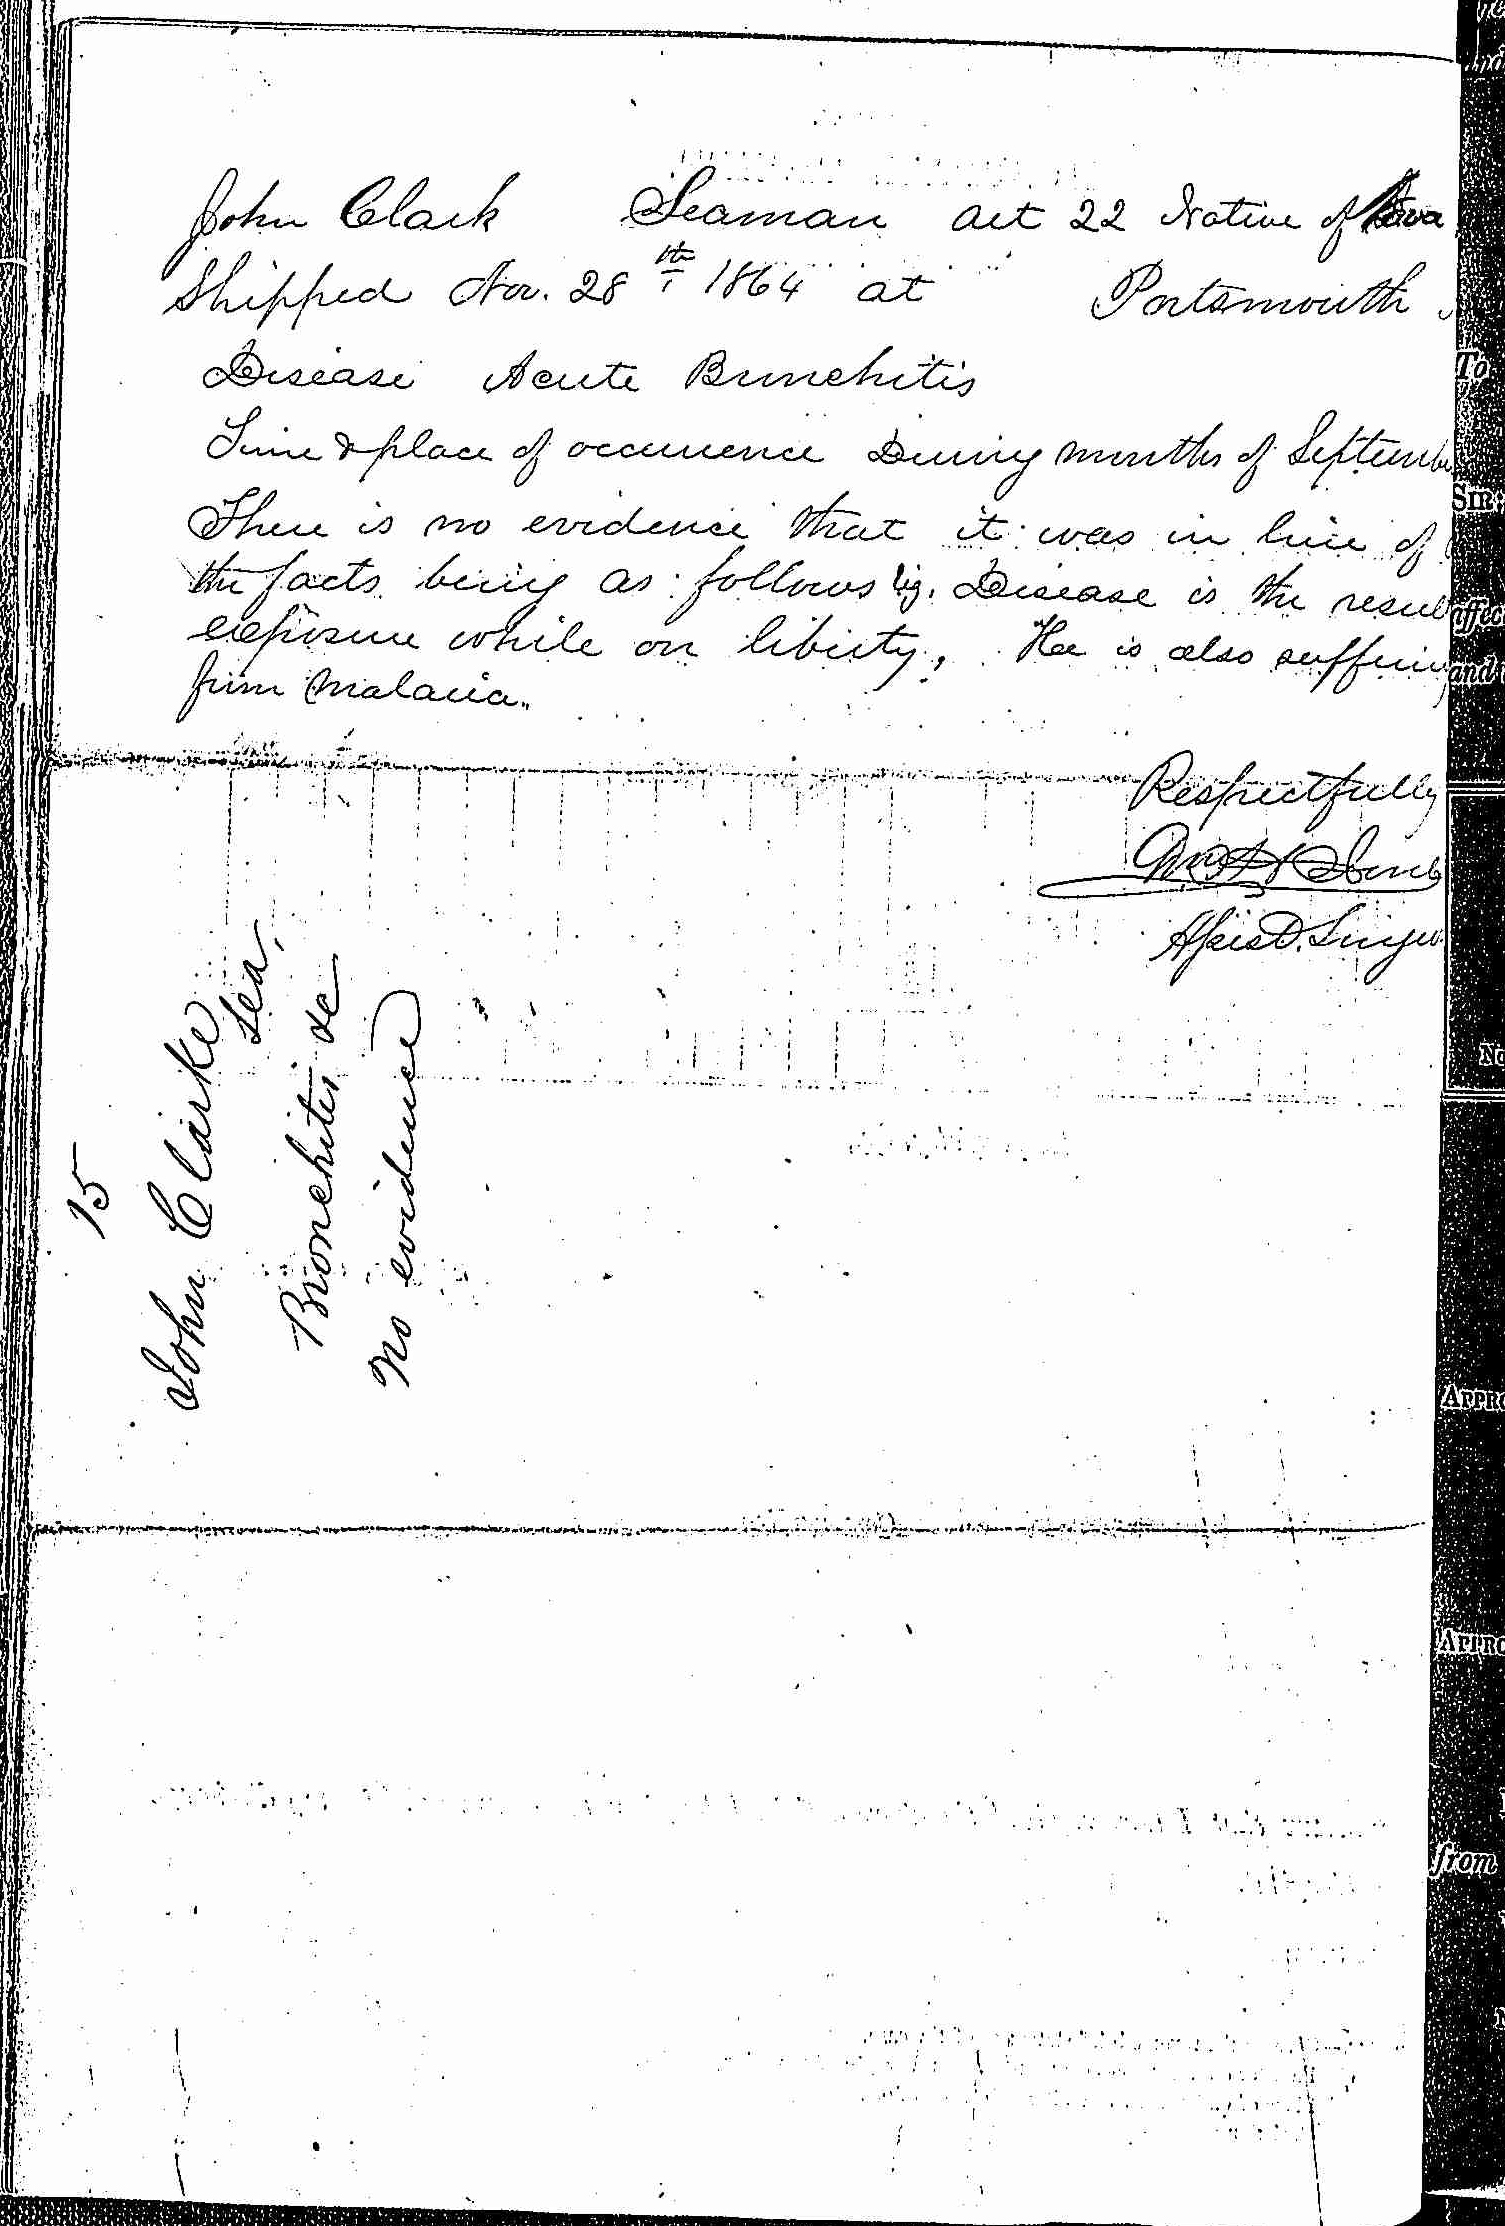 John Clark Seaman aet 22 Native of
Shipped Nov. 28th 1864 at Portsmouth
Disease Acute Bronchitis
Time & place of occurrence During months of Septembe
There is no evidence that it was in line of
the facts being as follows viz. Disease is the resul
exposure while on liberty, He is also suffering
from Malaria.
Respectfully
Assist. Surgeo
15
John Clarke
Sea,
Bronchitis &c
No evidence
To
Sir:
affec
and
No
Appro
Appro
from